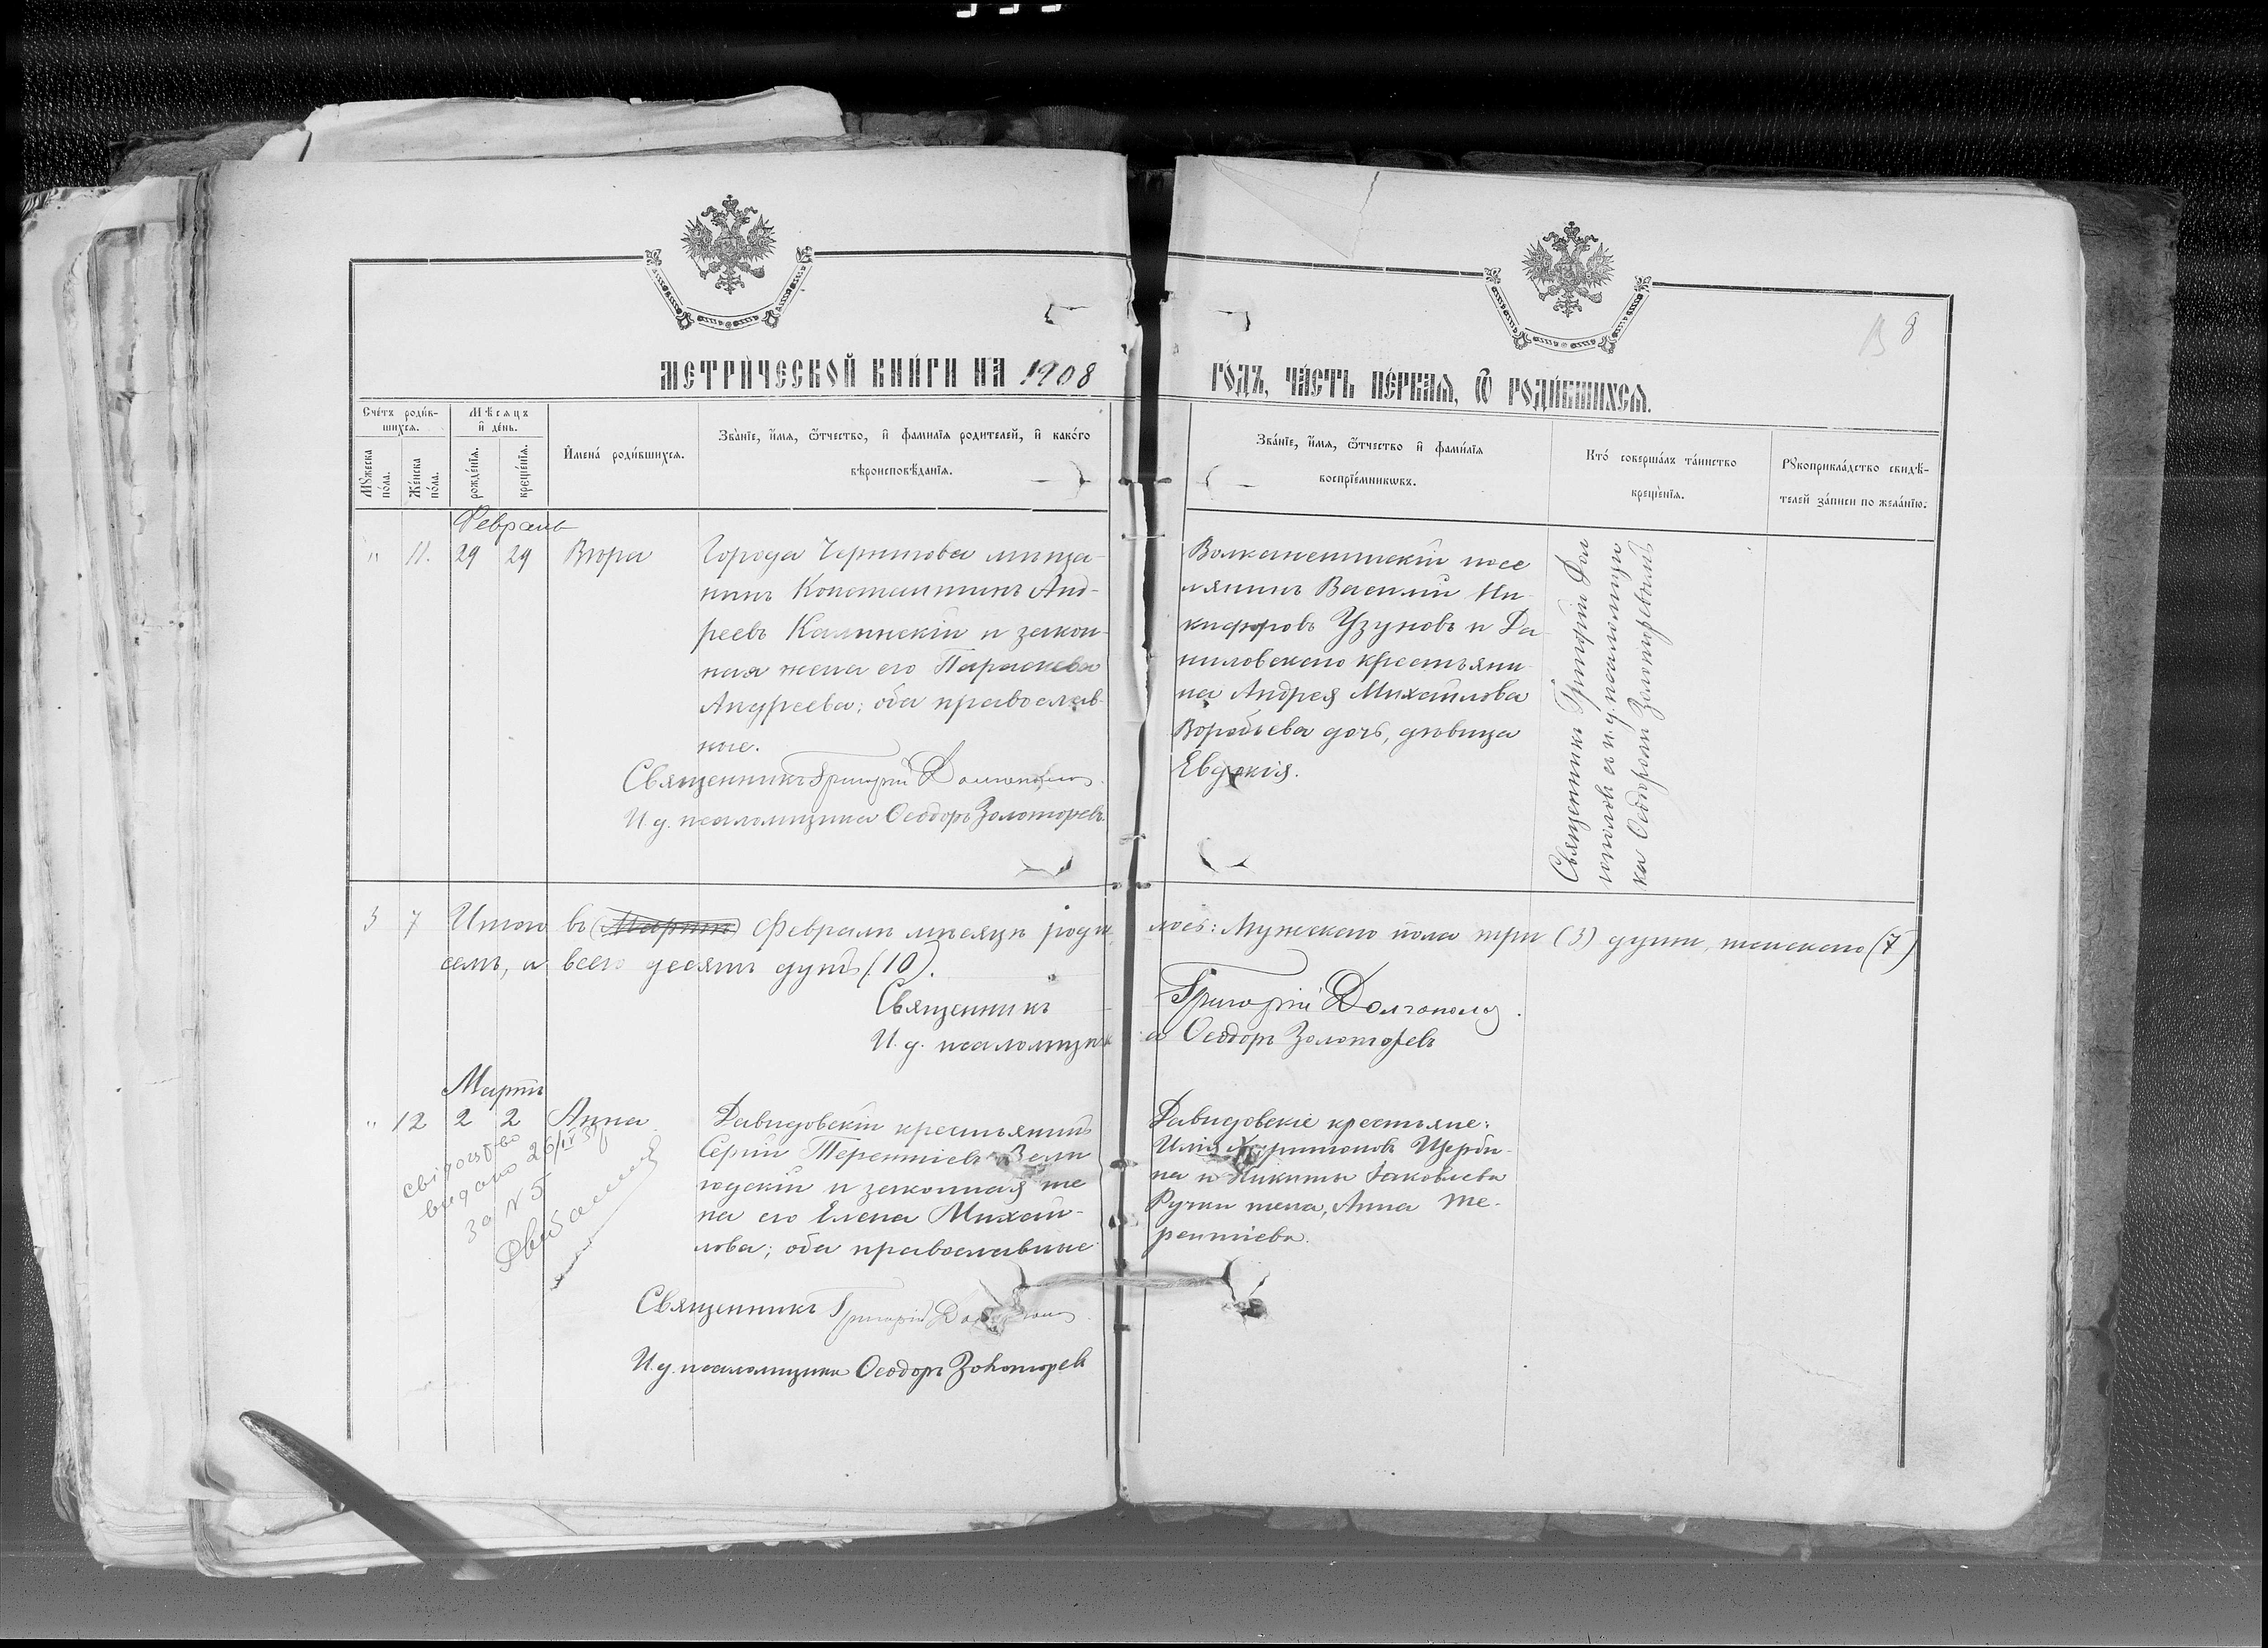 МЕТРИЧЕСКОЙ КНИГИ НА 1908
ГОДЪ, ЧАСТЬ ПЕРВАЯ, Ѿ РОДИВШИХСЯ.
8
Счетъ родив-
шихся.
Мѣсяцъ
и день.
Имена родившихся.
Званіе, имя, ѿтчество, и фамилія родителей, и какого
вѣроисповѣданія.
Мужеска
пола.
Женска
пола.
рожденія.
крещенія.
Званіе, имя, ѿтчество и фамилія
воспріемниковъ.
Кто совершалъ таинство
крещенія.
Рукоприкладство свидѣ-
телей записи по желанію.
Февраль
" 11. 29 29 Вѣра
Города Чернигова мѣща-
нинъ Константинъ Анд-
реевъ Калинскій и закон-
ная жена его Параскева
Андреева; оба православ-
ные.
Священникъ Григорій Долгополовъ
И. д. псаломщика Ѳеодоръ Золоторевъ
Волканештскій посе
лянинъ Василій Ни-
кифоровъ Узуновъ и Да-
ниловскаго крестьяни-
на Андрея Михайлова
Воробьева дочь, дѣвица
Евдокія.
Священникъ Григорій Дол
гополовъ и. д. псаломщи
ка Ѳеодоромъ Золоторевымъ
3 7 Итого въ Февралѣ мѣсяцѣ роди лось: Мужескаго пола три (3) души, женскаго (7)
семь, а всего десять душъ (10).
Священникъ Григорій Долгополов
И. д. псаломщика Ѳеодоръ Золоторевъ
Мартъ
" 12 2 2 Анна
свідоцтво
видано 26/IV
за N 5
Давидовскій крестьянинъ
Сергій Терентіевъ Вели
годскій и законная же
на его Елена Михай-
лова; оба православные
Священникъ Григорій
И. д. псаломщика Ѳеодоръ Золоторевъ
Давидовскіе крестьяне:
Илія Харитоновъ Щерби-
на и Никиты Іаковлева
Ручки жена, Анна Те-
рентіева.